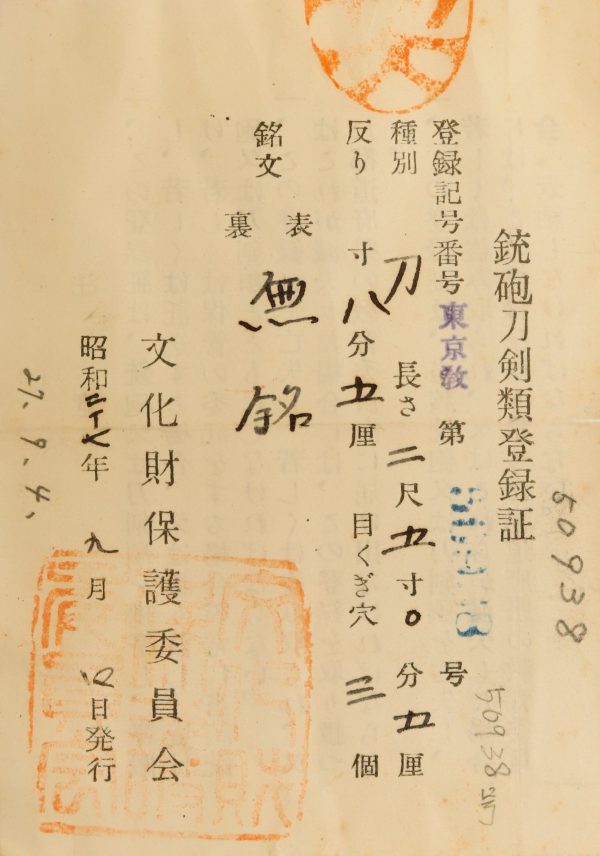 銃砲刀剣類登録証
50938
登録記号番号 東京教 第 号
50938号
種別 刀 長さ 二尺五寸0分五厘
反り 寸八分五厘 目くぎ穴 三個
銘文 表 無銘
裏
文化財保護委員会
昭和二十七年 九月 四日発行
27.9.4.